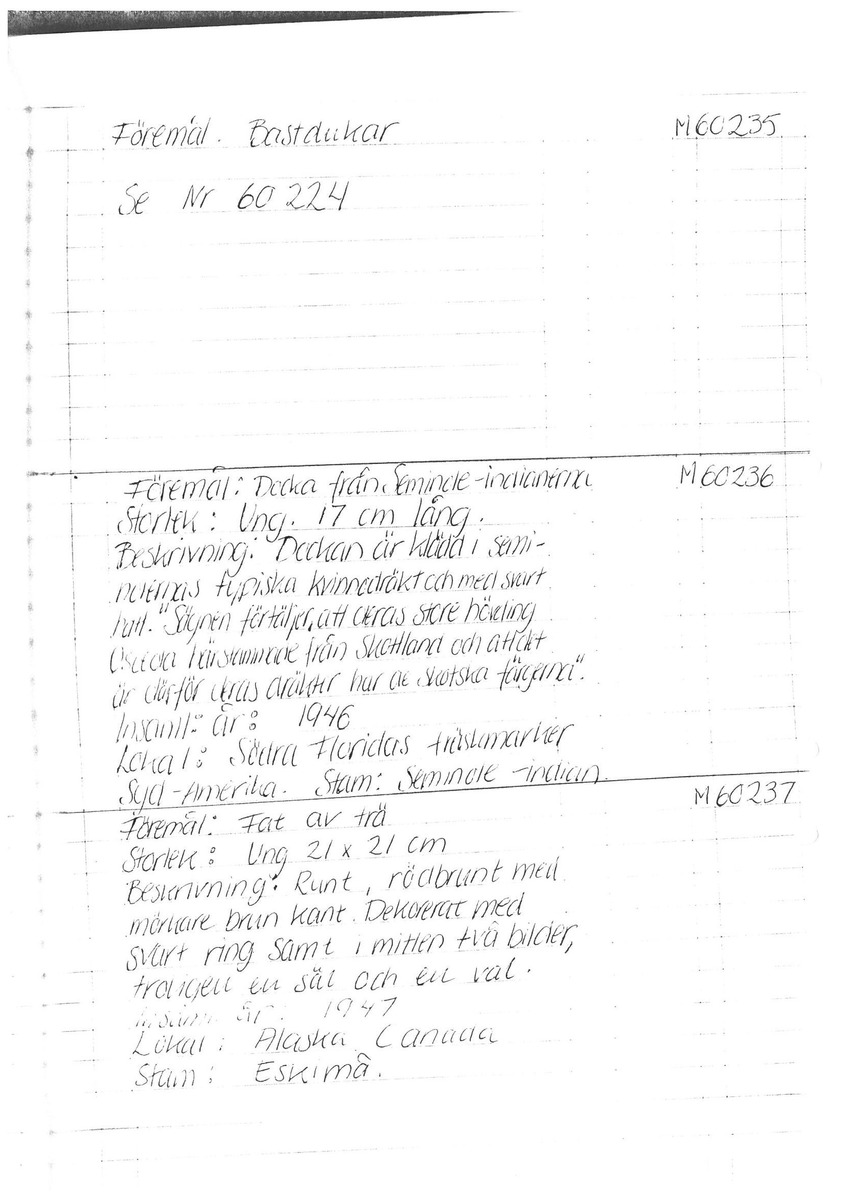 Föremål. Bastdukar M60235
Se Nr 60 224
Föremål: Docka från Seminole-indianerna M60236
Storlek: Ung. 17 cm lång.
Beskrivning: Dockan är klädd i semi-
nolernas typiska kvinnodräkt och med svart
hatt. "Sägnen förtäljer, att deras store hövding
Osceola härstammade från Skottland och att det
är därför deras dräkter har de skotska färgerna".
Insaml: år: 1946
Lokal: Södra Floridas träskmarker
Syd-Amerika. Stam: Seminole-indian.
Föremål: Fat av trä M60237
Storlek: Ung 21 x 21 cm
Beskrivning: Runt, rödbrunt med
mörkare brun kant. Dekorerat med
svart ring samt i mitten två bilder,
troligen en säl och en val.
Insaml år: 1947
Lokal: Alaska Canada
Stam: Eskimå.